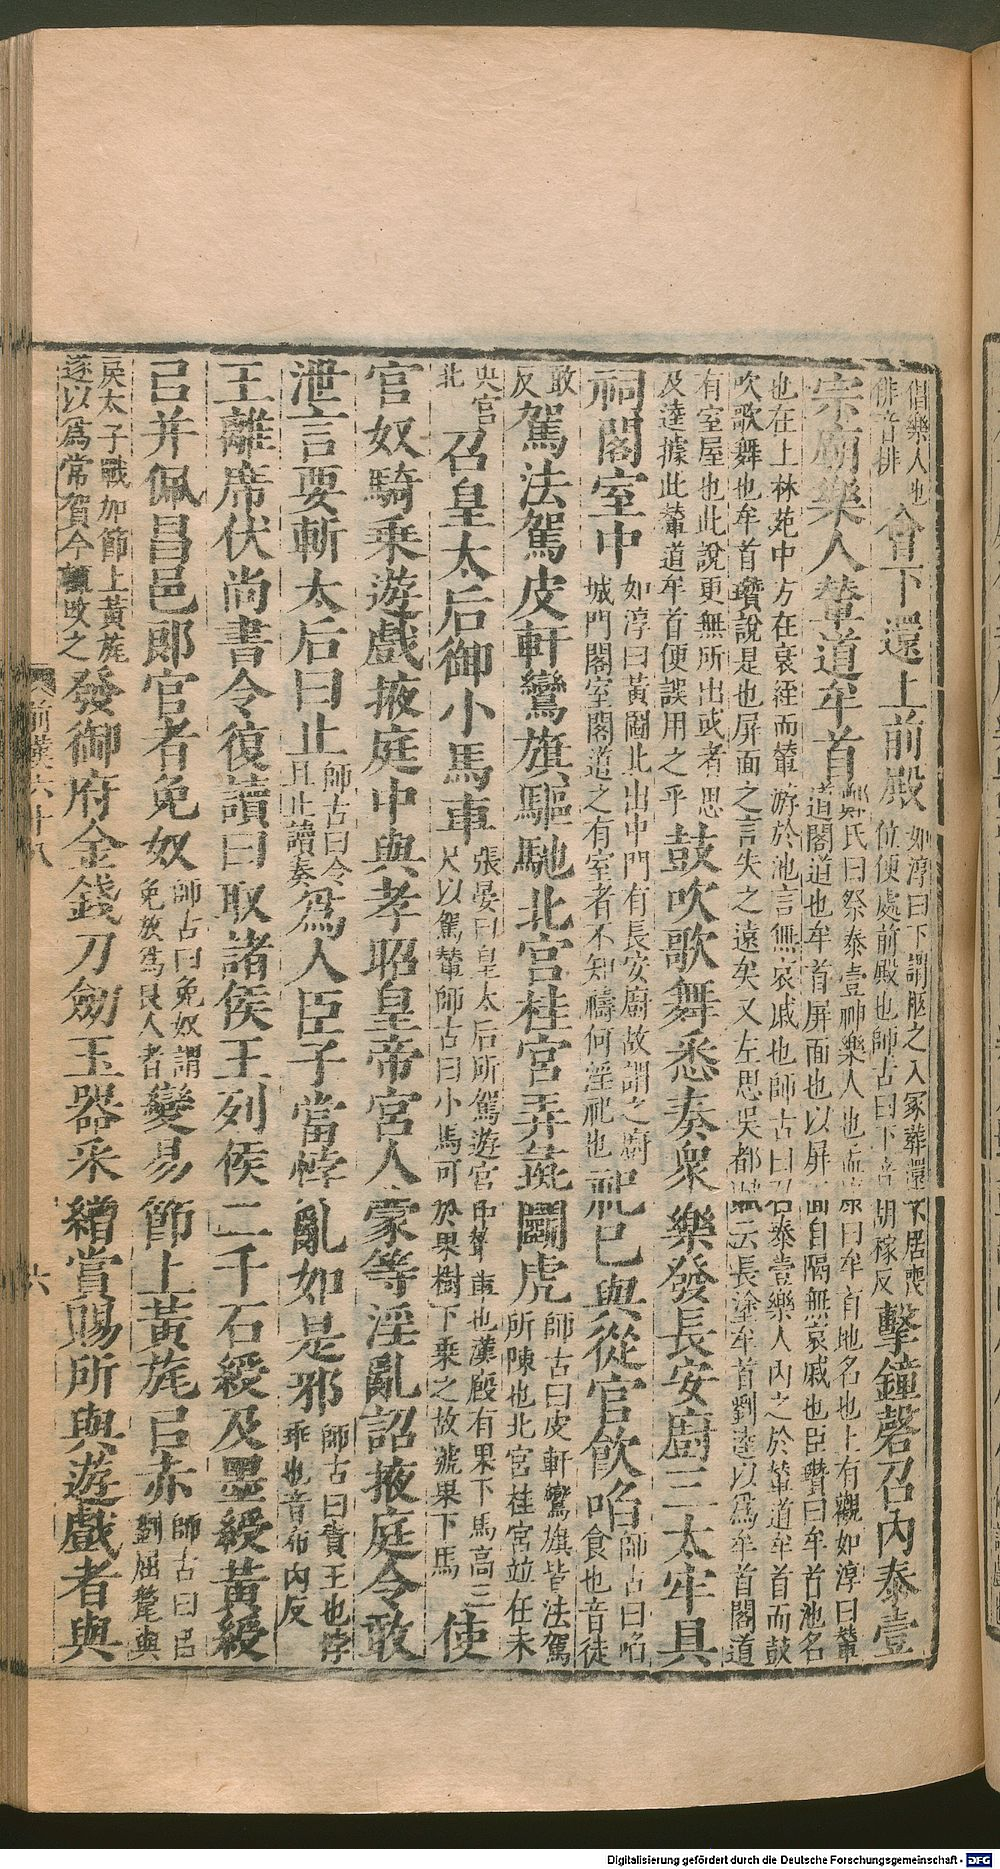 倡樂人也俳音排會下還上前殿如淳曰下謂柩之入冢葬還不居喪位便處前殿也師古曰下音胡稼反擊鐘磬召內泰壹
宗廟樂人輦道牟首鄭氏曰祭泰壹神樂人也孟康曰牟首地名也上有觀如淳曰輦道閣道也牟首屏面也以屏面自隔無哀戚也臣瓚曰牟首池名
也在上林苑中方在衰絰而輦游於池言無哀戚也師古曰召泰壹樂人內之於輦道牟首而鼓吹歌舞也牟首瓚說是也屏面之言失之遠矣又左思吳都賦云長塗牟首劉逵以爲牟首閣道
有室屋也此說更無所出或者思及逵據此輦道牟首便誤用之乎鼓吹歌舞悉奏衆樂發長安廚三太牢具
祠閣室中如淳曰黃圖北出中門有長安廚故謂之廚城門閣室閣道之有室者不知禱何淫祀也祀已與從官飲啗師古曰啗食也音徒
敢反駕法駕皮軒鸞旗驅馳北宮桂宮弄彘鬭虎師古曰皮軒鸞旗皆法駕所陳也北宮桂宮竝在未
央宮北召皇太后御小馬車張晏曰皇太后所駕遊宮中輦車也漢廄有果下馬高三尺以駕輦師古曰小馬可於果樹下乘之故號果下馬使
官奴騎乘遊戲掖庭中與孝昭皇帝宮人蒙等淫亂詔掖庭令敢
泄言要斬太后曰止師古曰令且止讀奏爲人臣子當悖亂如是邪師古曰責王也悖乖也音布內反
王離席伏尚書令復讀曰取諸侯王列侯二千石綬及墨綬黃綬
㠯幷佩昌邑郎官者免奴師古曰免奴謂免放爲良人者變易節上黃旄㠯赤師古曰㠯劉屈氂與
戾太子戰加節上黃旄遂以爲常賀今輒改之發御府金錢刀劒玉器采繒賞賜所與遊戲者與
前漢六十八
六
Digitalisierung gefördert durch die Deutsche Forschungsgemeinschaft - DFG